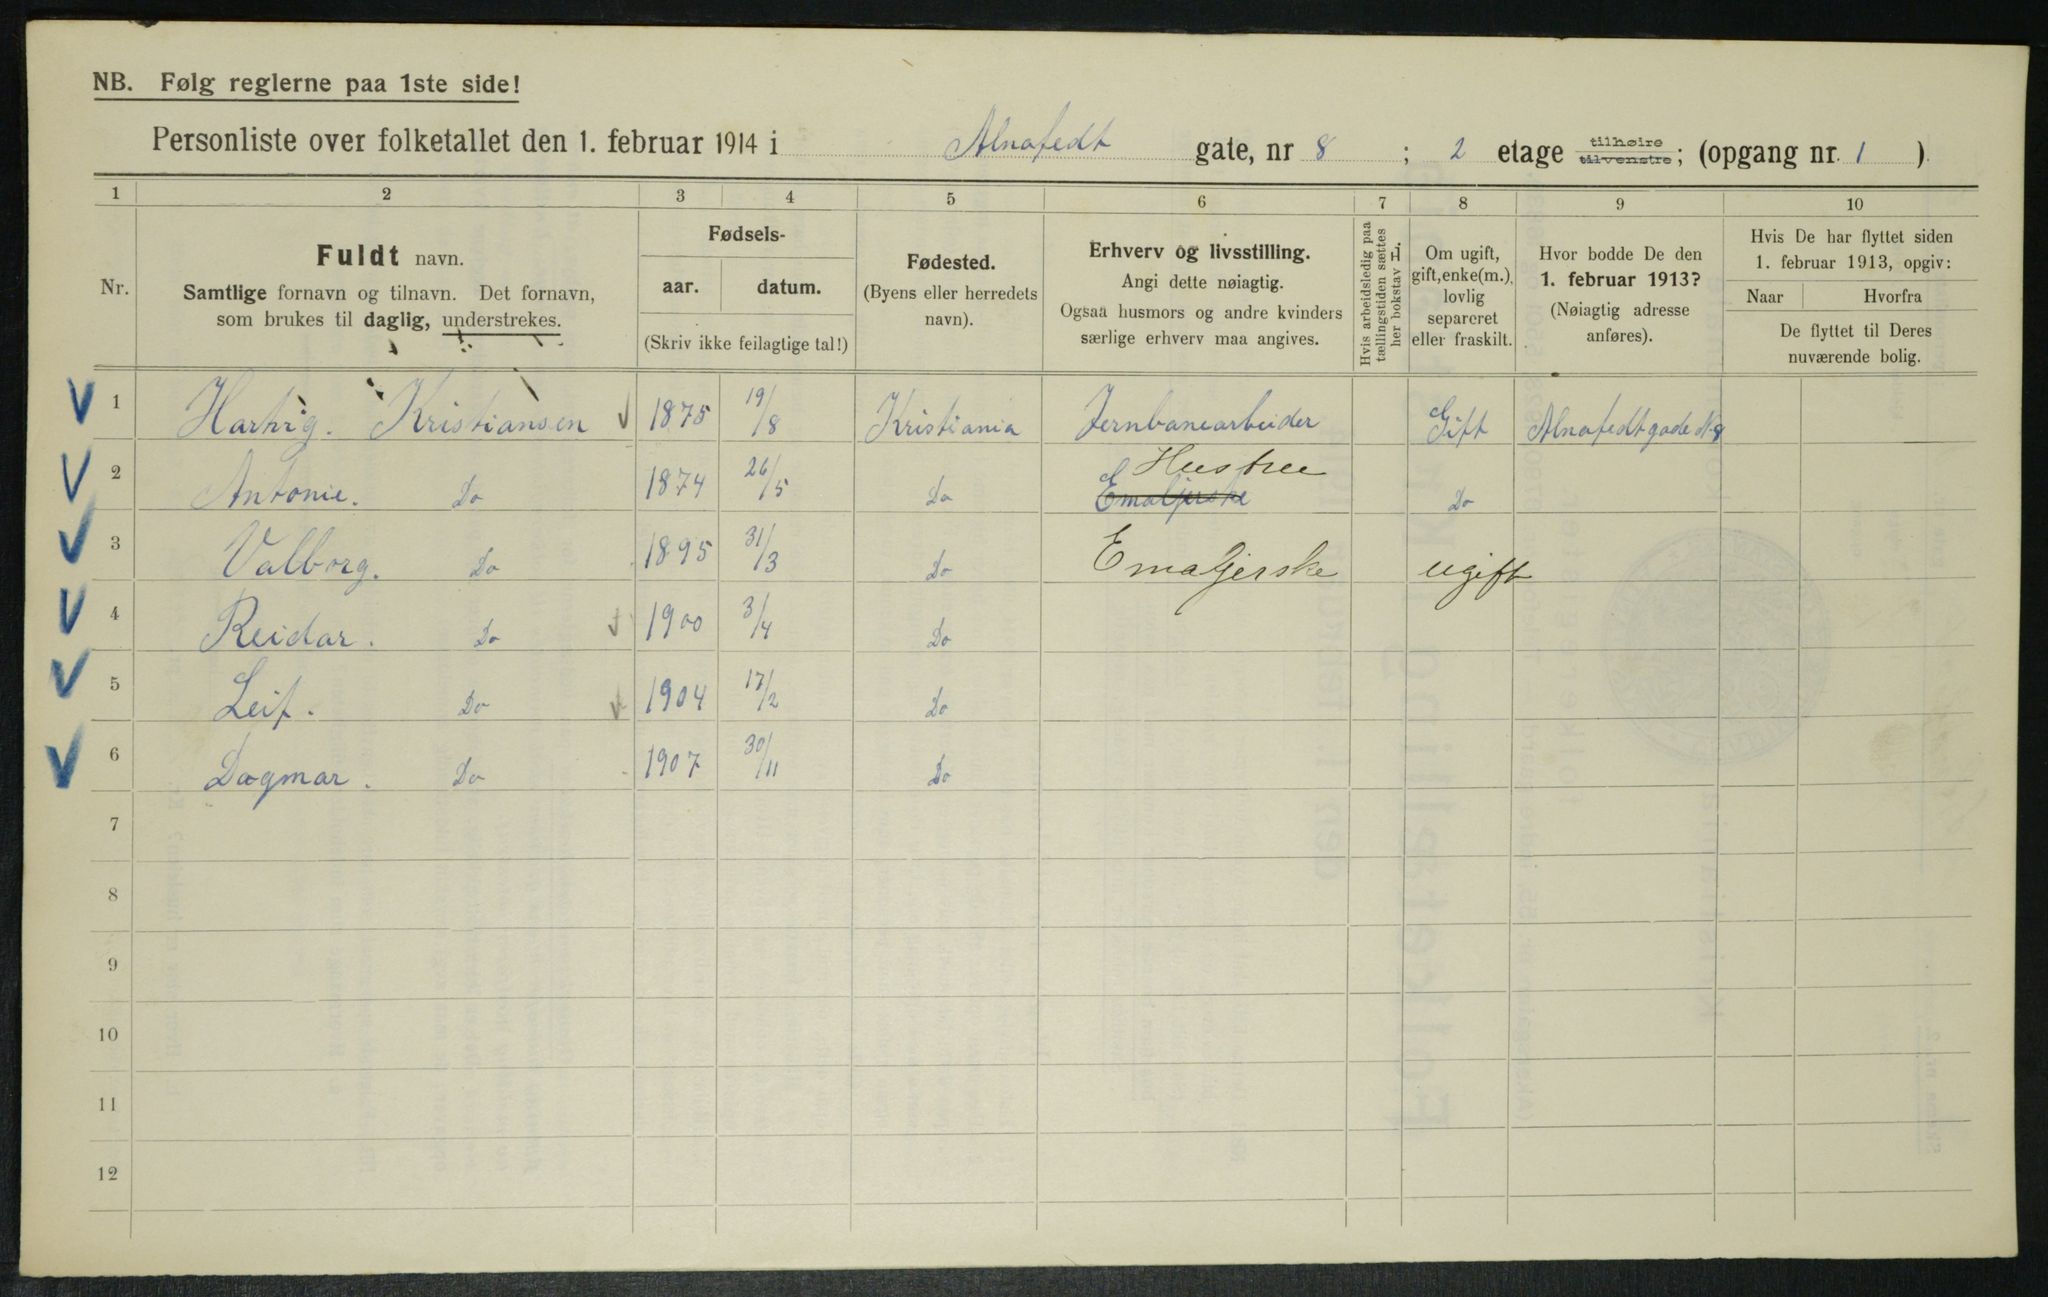 NB. Følg reglerne paa 1ste side!
Personliste over folketallet den 1. februar 1914 i Alnafedt gate, nr 8 ; 2 etage tilhøire tilvenstre; (opgang nr. 1 )
1 2 3 4 5 6 7 8 9 10
Nr.
Fuldt navn.
Samtlige fornavn og tilnavn. Det fornavn,
som brukes til daglig, understrekes.
Fødsels-
aar. datum.
(Skriv ikke feilagtige tal!)
Fødested.
(Byens eller herredets
navn).
Erhverv og livsstilling.
Angi dette nøiagtig.
Ogsaa husmors og andre kvinders
særlige erhverv maa angives.
Hvis arbeidsledig paa
tællingstiden sættes
her bokstav L.
Om ugift,
gift, enke(m.),
lovlig
separeret
eller fraskilt.
Hvor bodde De den
1. februar 1913?
(Nøiagtig adresse
anføres).
Hvis De har flyttet siden
1. februar 1913, opgiv:
Naar Hvorfra
De flyttet til Deres
nuværende bolig.
1 Hartvig. Kristiansen 1875 19/8 Kristiania Jernbanearbeider Gift Alnafedtgade No 8
Hustru
2 Antonie. Do 1874 26/5 Do Emaljerske Do
3 Valborg. Do 1895 31/3 Do Emaljerske ugift
4 Reidar. Do 1900 3/4 Do
5 Leif. Do 1904 17/2 Do
6 Dagmar. Do 1907 30/11 Do
7
8
9
10
11
12